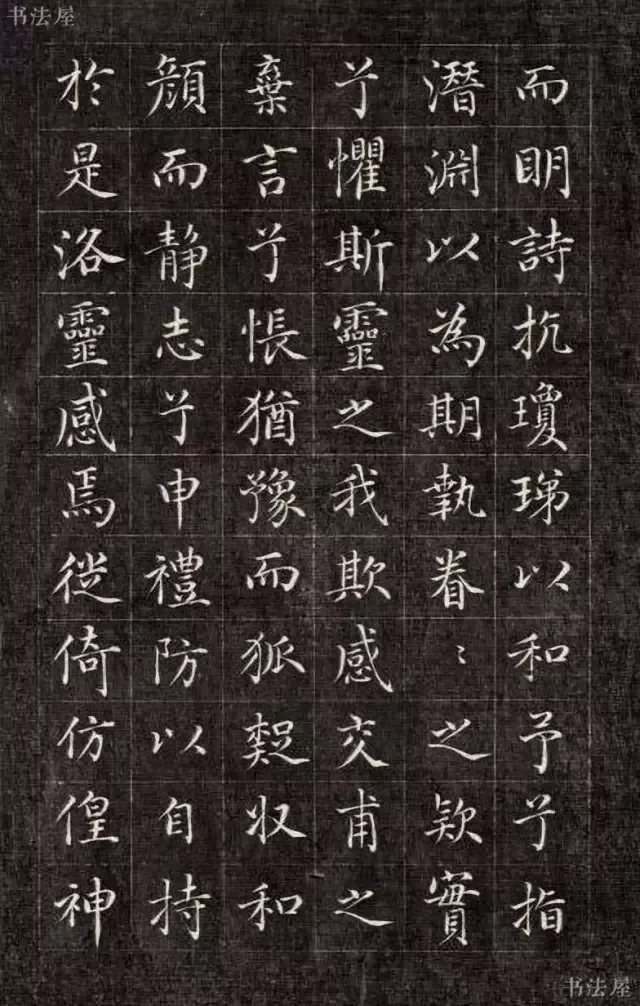 书法屋
而眀詩抗瓊珶以和予兮指
潛淵以為期執眷〻之欵實
兮懼斯靈之我欺感交甫之
棄言兮悵猶豫而狐疑収和
顔而静志兮申禮防以自持
於是洛靈感焉徙倚仿偟神
书法屋